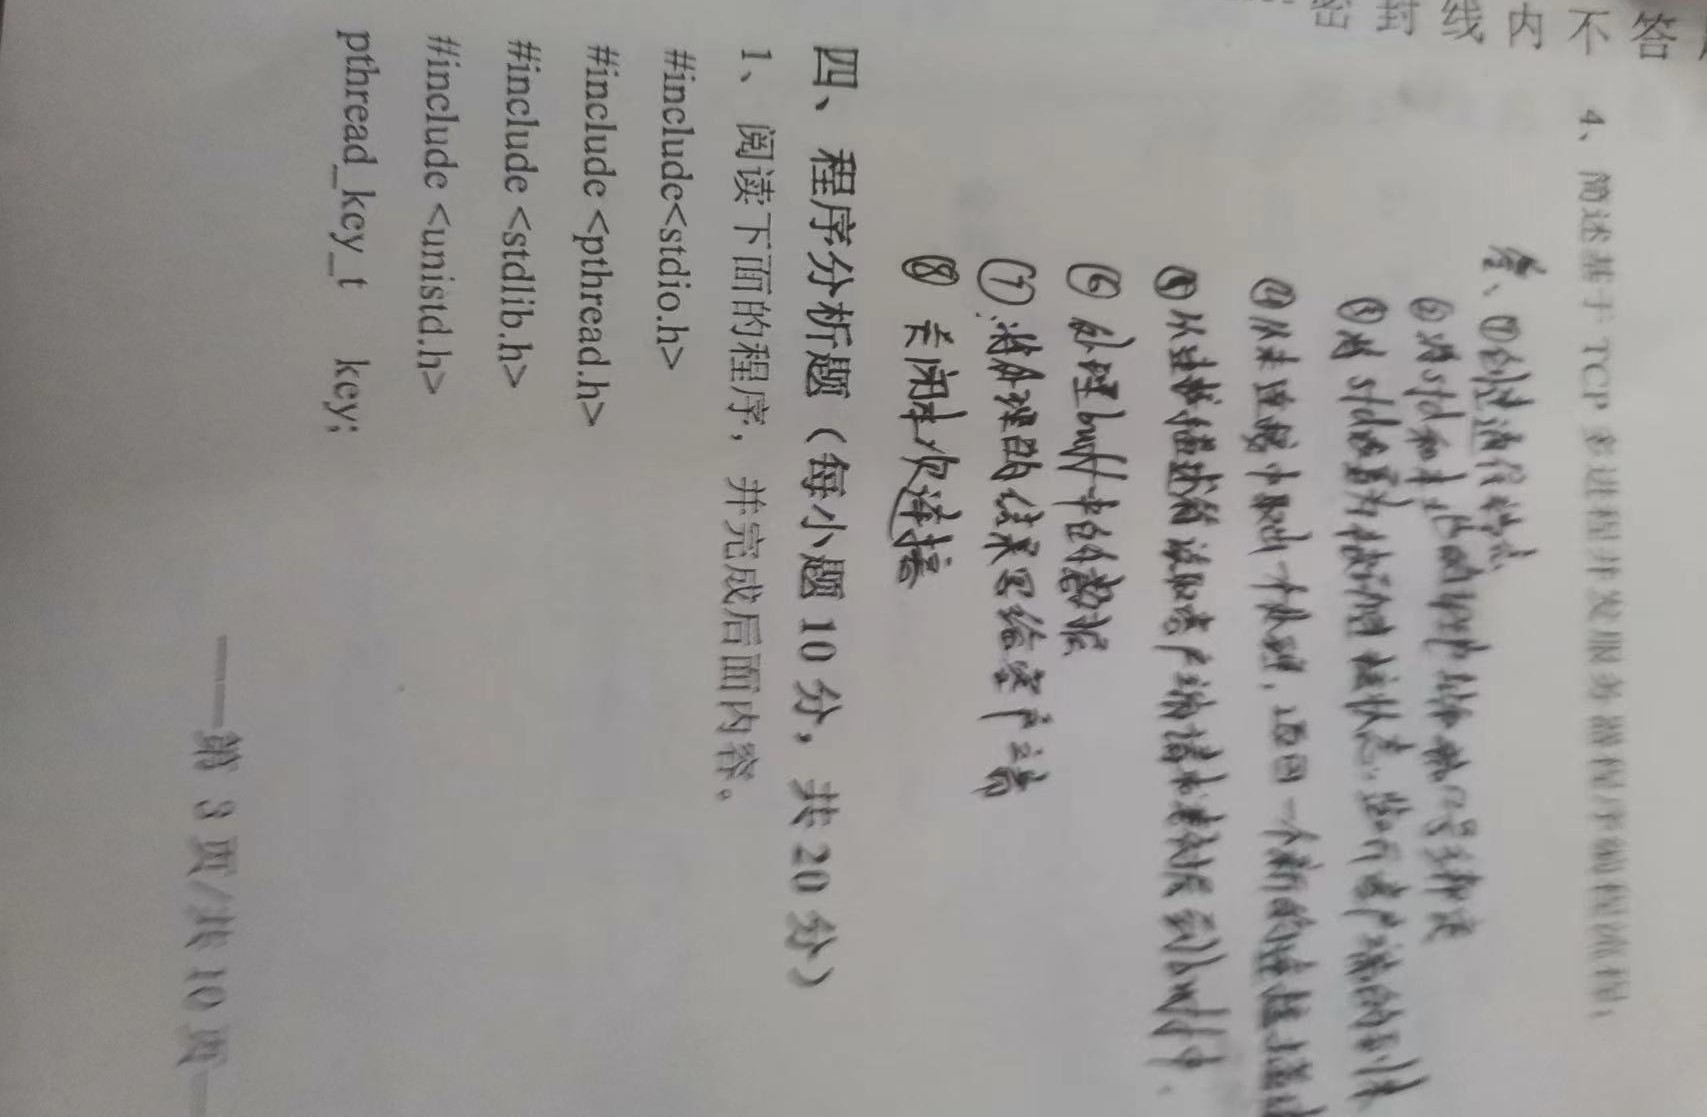 密封线内不答
4、简述基于 TCP 多进程并发服务器程序编程流程;
答、①创建通信端点
②将sfd和本地的IP地址和端口号绑定
③将sfd设置为被动连接状态,监听客户端的到来
④从未连接中取出一个处理,返回一个新的连接描述
⑤从连接描述符读取客户端请求数据到buff中.
⑥处理buff中的数据
⑦.将处理的结果写给客户端
⑧关闭本次连接
四、程序分析题(每小题 10 分,共 20 分)
1、阅读下面的程序,并完成后面内容。
#include<stdio.h>
#include <pthread.h>
#include <stdlib.h>
#include <unistd.h>
pthread_key_t key;
——第 3 页/共 10 页—